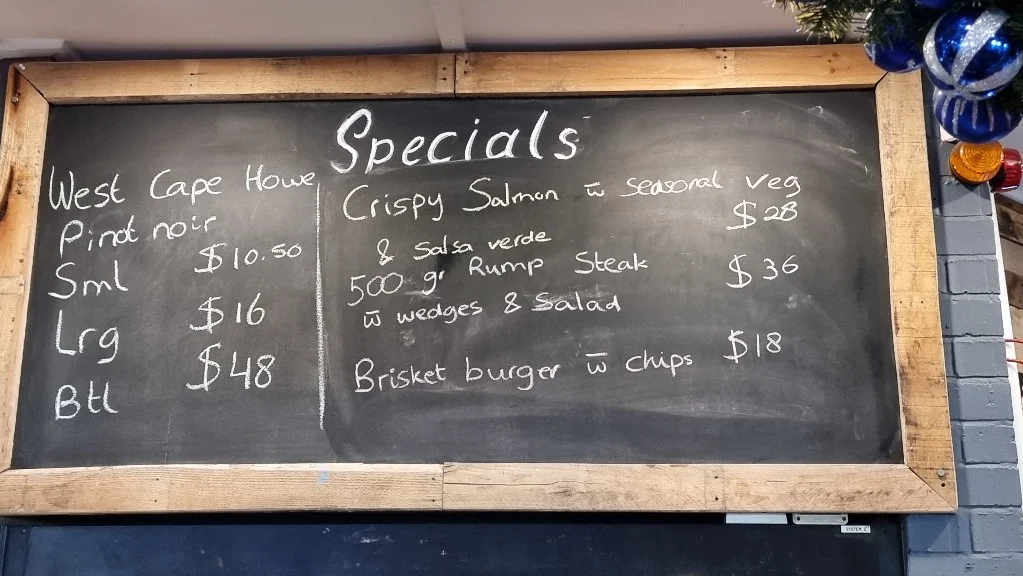 Specials
West Cape Howe
Pinot noir
Sml $10.50
Lrg $16
Btl $48
Crispy Salmon w̄ seasonal veg
& Salsa verde $28
500 gr Rump Steak $36
w̄ wedges & Salad
Brisket burger w̄ chips $18
SYSTEM 2